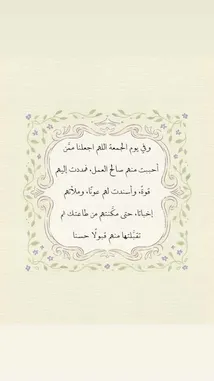 وفي يوم الجمعة اللهم اجعلنا ممّن
أحببت منهم صالح العمل، فمددت إليهم
قوة، وأسندت لهم عونًا، وملأتهم
إخباتًا، حتى مكّنتهم من طاعتك ثم
تقبّلتها منهم قبولًا حسنا